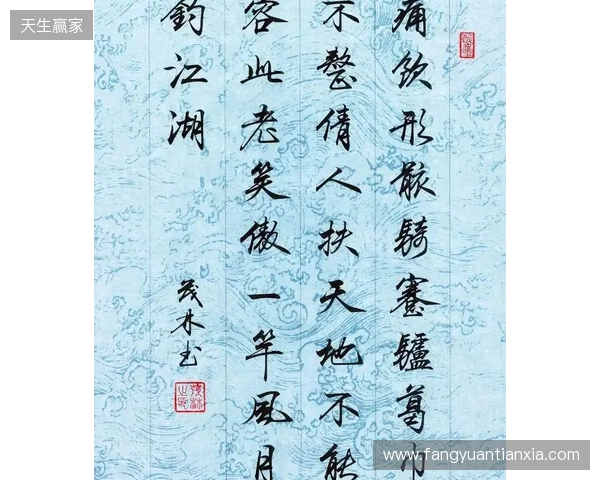 天生赢家
痛飲形骸騎蹇驢葛巾
不整倩人扶天地不能
容此老笑傲一竿風月
釣江湖
茂林书
www.fangyuantianxia.com